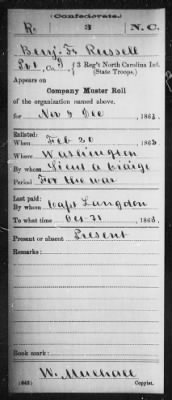 (Confederate.)
R. 3 N. C.
Benj. F. Russell
Pvt, Co. 3 Reg't North Carolina Inf.
(State Troops.)
Appears on
Company Muster Roll
of the organization named above,
for Nov & Dec, 1863
Enlisted:
When Feb 20 1863
Where Washington
By whom Lieut
Period For the war
Last paid:
By whom Capt Langdon
To what time Oct 31 1863
Present or absent Present
Remarks:
Book mark:
W. Mulhall
(642) Copyist.